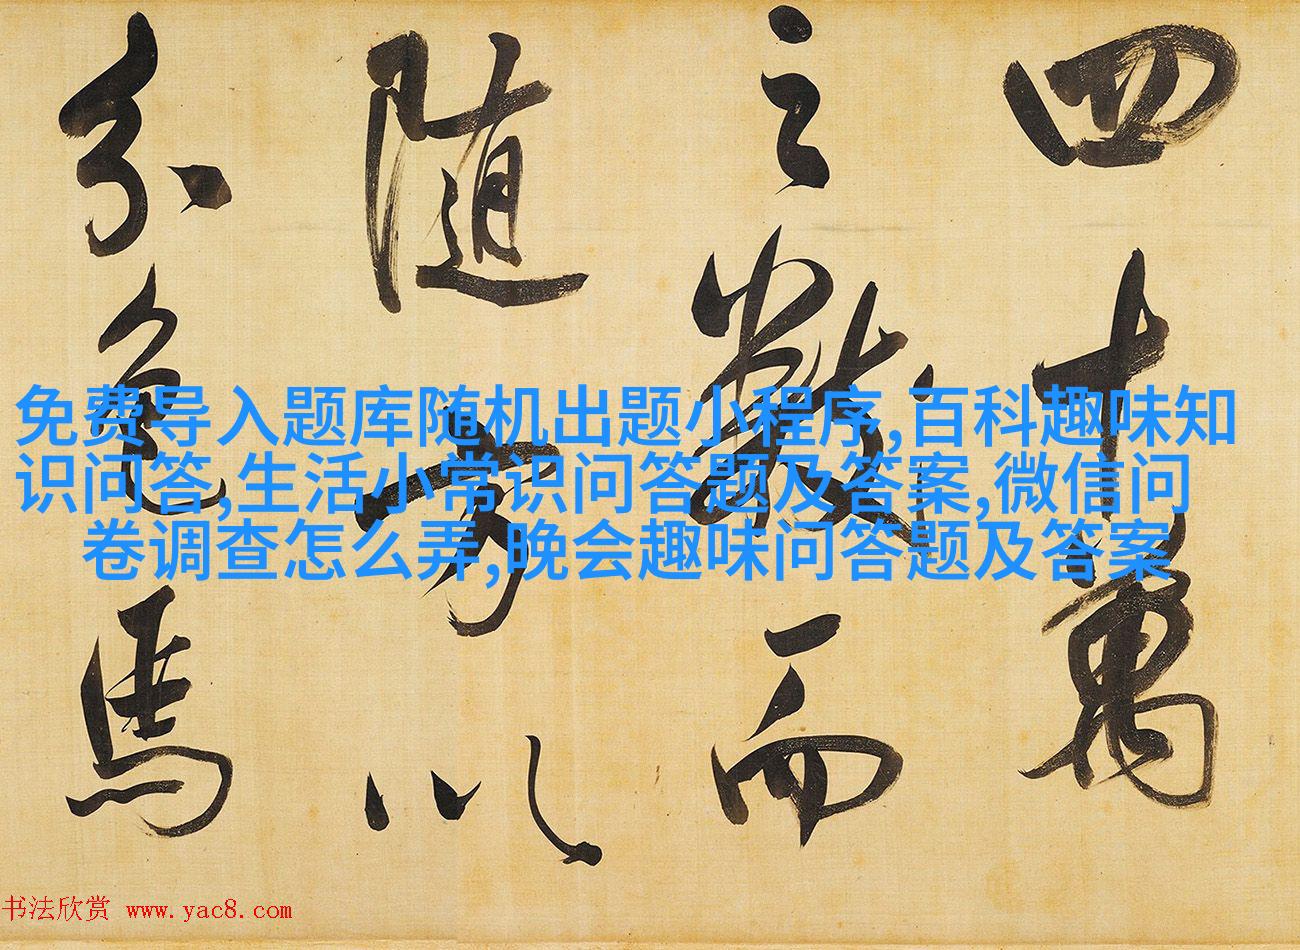 四十萬
之數而
随方以
分色馬
免费导入题库随机出题小程序,百科趣味知
识问答,生活小常识问答题及答案,微信问
卷调查怎么弄,晚会趣味问答题及答案
书法欣赏 www.yac8.com